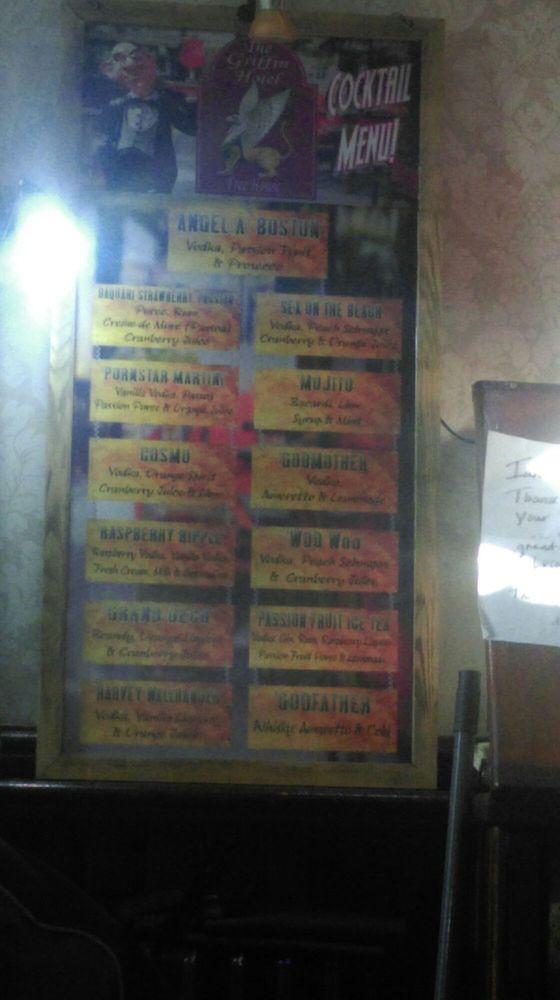 The
Griffin
Hotel
Free House
COCKTAIL
MENU!
ANGEL A' BOSTON
Vodka, Passion Fruit
& Prosecco
DAQUARI STRAWBERRY PASSION
Puree, Rum
Creme de Mure
Cranberry Juice
SEX ON THE BEACH
Vodka, Peach Schnapps
Cranberry & Orange Juice
PORNSTAR MARTINI
Vanilla Vodka, Passoa
Passion Puree & Orange Juice
MOJITO
Bacardi, Lime
Syrup & Mint
COSMO
Vodka, Orange Spirit
Cranberry Juice & Lime
GODMOTHER
Vodka,
Amaretto & Lemonade
RASPBERRY RIPPLE
Raspberry Vodka, Vanilla Vodka,
Fresh Cream, Milk &
WOO WOO
Vodka, Peach Schnapps
& Cranberry Juice
GRAND DECO
Brandy, Orange Liqueur
& Cranberry Juice
PASSION FRUIT ICE TEA
Vodka, Gin, Rum, Raspberry Liqueur
Passion Fruit Puree & Lemonade
HARVEY WALLBANGER
Vodka, Vanilla Liqueur
& Orange Juice
GODFATHER
Whisky, Amaretto & Cola
Thank
your